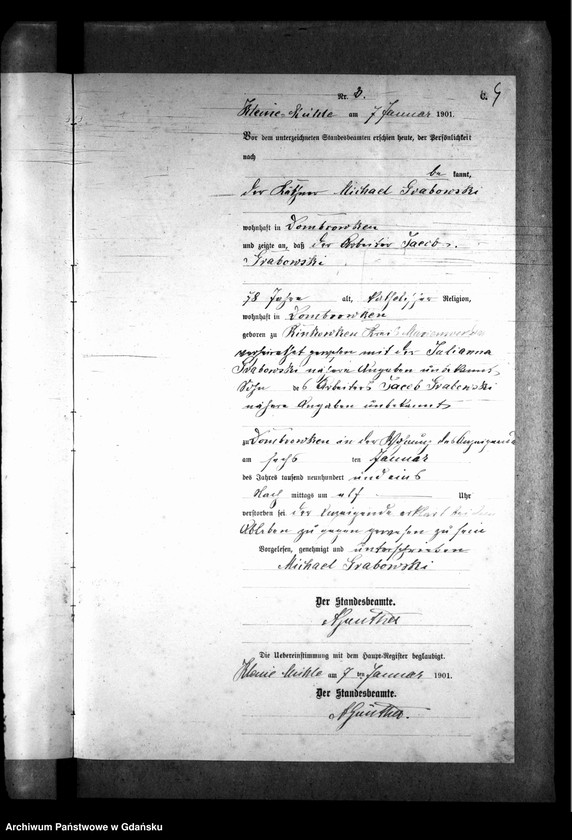 Nr. 3.
C. 4
Kleine-Mühle am 7 Januar 1901.
Vor dem unterzeichneten Standesbeamten erschien heute, der Persönlichkeit
nach
be kannt,
der Käthner Michael Grabowski
wohnhaft in Dombrowken
und zeigte an, daß der Arbeiter Jacob
Grabowski
78 Jahre alt, katholischer Religion,
wohnhaft in Dombrowken
geboren zu Rinkowken Kreis Marienwerder
verheirathet gewesen mit der Julianna
Grabowski nähere Angaben unbekannt,
Sohn des Arbeiters Jacob Grabowski
nähere Angaben unbekannt
zu Dombrowken in der Wohnung des Anzeigenden
am sechs ten Januar
des Jahres tausend neunhundert und eins
Nach mittags um elf Uhr
verstorben sei der Anzeigende erklärt bei dem
Ableben zugegen gewesen zu sein
Vorgelesen, genehmigt und unterschrieben
Michael Grabowski
Der Standesbeamte.
A Günther
Die Uebereinstimmung mit dem Haupt-Register beglaubigt.
Kleine Mühle am 7 ten Januar 1901.
Der Standesbeamte.
A Günther.
Archiwum Państwowe w Gdańsku